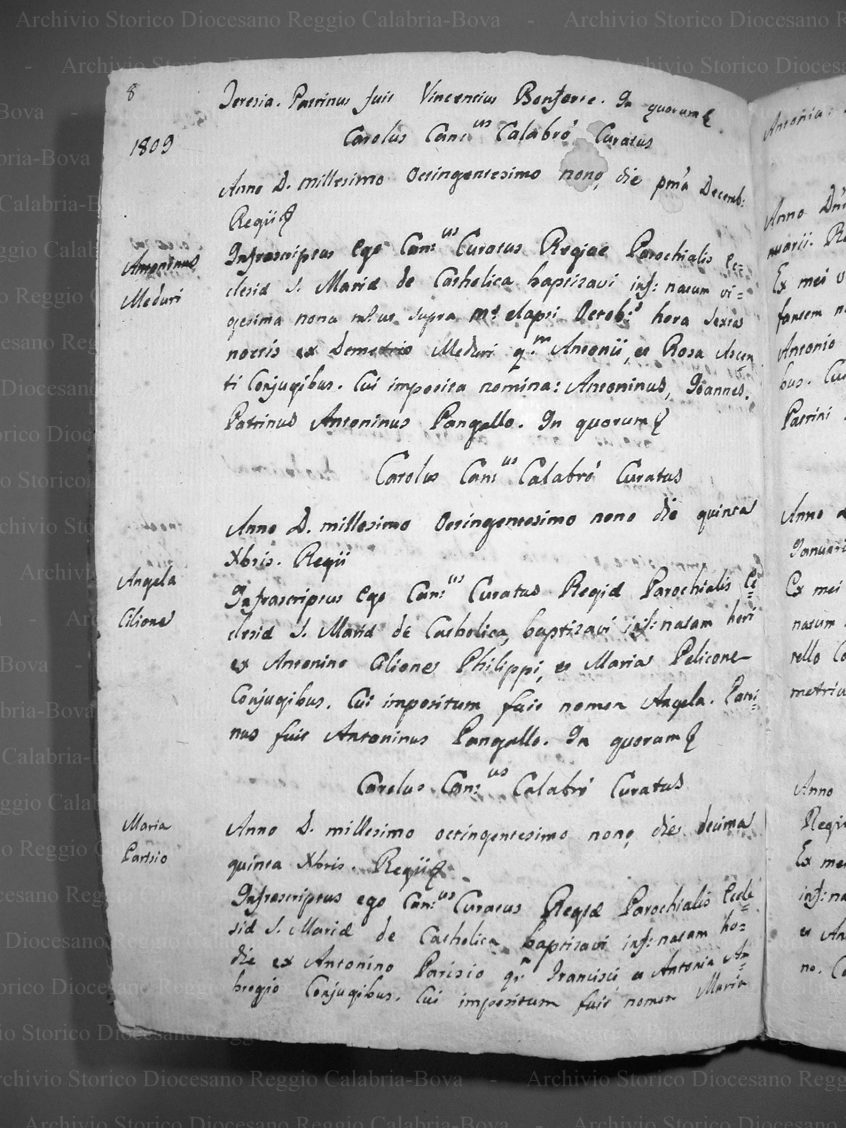 8
Teresia. Patrinus fuit Vincencius Bonforte. In quorum &
1809
Carolus Can:us Calabró Curatus
Anno D. millesimo Octingentesimo nono, die pma Decemb:
Regii &
Antoninus
Meduri
Infrascriptus Ego Can:us Curatus Regiae Parochialis Ec=
clesiae S. Mariae de Catholica baptizavi inf: natum vi=
gesima nona supra elapsi Octob:s hora sexta
noctis ex Demetrio Meduri q.m Antonii, et Rosa Ascen
ti Conjugibus. Cui imposita nomina: Antoninus, Joannes.
Patrinus Antoninus Pangallo. In quorum &
Carolus Can:us Calabró Curatus
Anno D. millesimo Octingentesimo nono die quinta
Xbris. Regii
Angela
Cilione
Infrascriptus Ego Can:us Curatus Regiae Parochialis Ec=
clesiae S. Mariae de Catholica, baptizavi inf: natam heri
ex Antonino Cilione Philippi, et Maria Pelicone
Conjugibus. Cui impositum fuit nomen Angela. Patri=
nus fuit Antoninus Pangallo. In quorum &
Carolus Can:us Calabró Curatus
Maria
Parisio
Anno D. millesimo octingentesimo nono, die decima
quinta Xbris. Regii &
Infrascriptus ego Can:us Curatus Regiae Parochialis Eccle
siae S. Mariae de Catholica baptizavi inf: natam ho=
die ex Antonino Parisio q.m Francisci et Antonia Am=
brogio Conjugibus. Cui impositum fuit nomen Maria
Antonia
Anno Dni
nuarii. Re
Ex mei
fantem n
Antonio
bus. Cu
Patrini
Anno
Januarii
Ex mei
natum
rello Co
metriu
Anno
Regii
Ex mei
inf: na
et An
no. C
Archivio Storico Diocesano Reggio Calabria-Bova